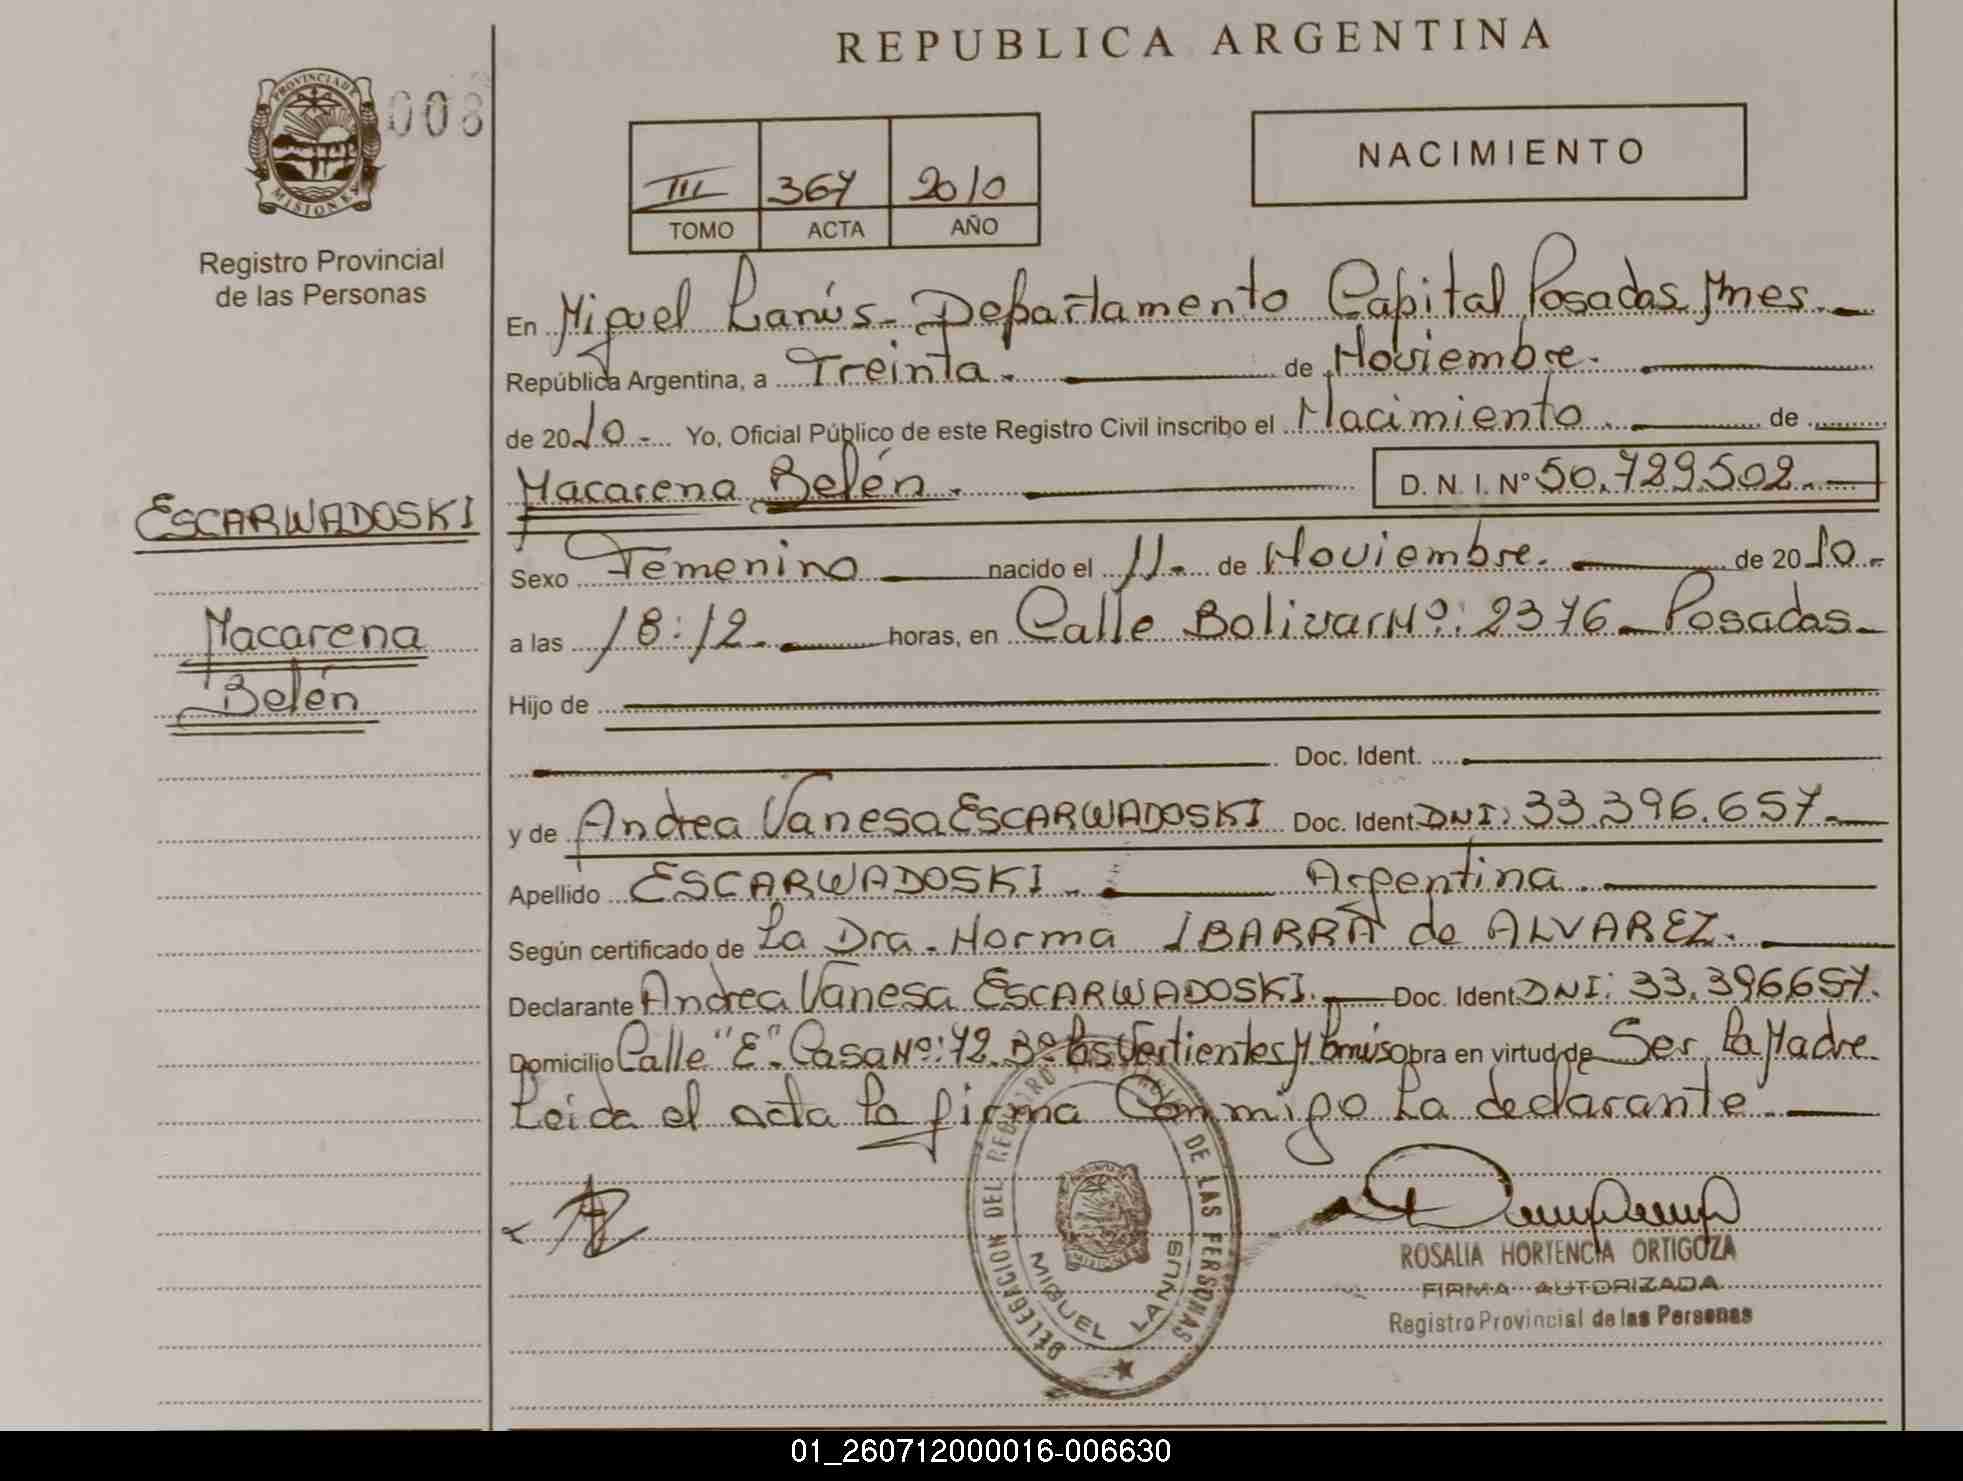 REPUBLICA ARGENTINA
PROVINCIA DE MISIONES
008
Registro Provincial
de las Personas
III 367 2010
TOMO ACTA AÑO
NACIMIENTO
En Miguel Lanús - Departamento Capital Posadas Mnes.
República Argentina, a Treinta. de Noviembre.
de 2010.- Yo, Oficial Público de este Registro Civil inscribo el Nacimiento. de
Macarena Belén. D. N. I. Nº 50.729.502.
ESCARWADOSKI
Macarena
Belén
Sexo Femenino nacido el 11. de Noviembre. de 2010.-
a las 18:12. horas, en Calle Bolivar Nº: 2376 - Posadas -
Hijo de
Doc. Ident.
y de Andrea Vanesa ESCARWADOSKI Doc. Ident. DNI: 33.396.657.
Apellido ESCARWADOSKI. Argentina.
Según certificado de La Dra. Norma IBARRA de ALVAREZ.
Declarante Andrea Vanesa ESCARWADOSKI. Doc. Ident. DNI: 33.396.657.
Domicilio Calle "E". Casa Nº: 72. Bº Las Vertientes obra en virtud de Ser La Madre.
Leida el acta la firma Conmigo La declarante.
DELEGACION DEL REGISTRO DE LAS PERSONAS
MIGUEL LANUS
ROSALIA HORTENCIA ORTIGOZA
FIRMA AUTORIZADA
Registro Provincial de las Personas
01_260712000016-006630